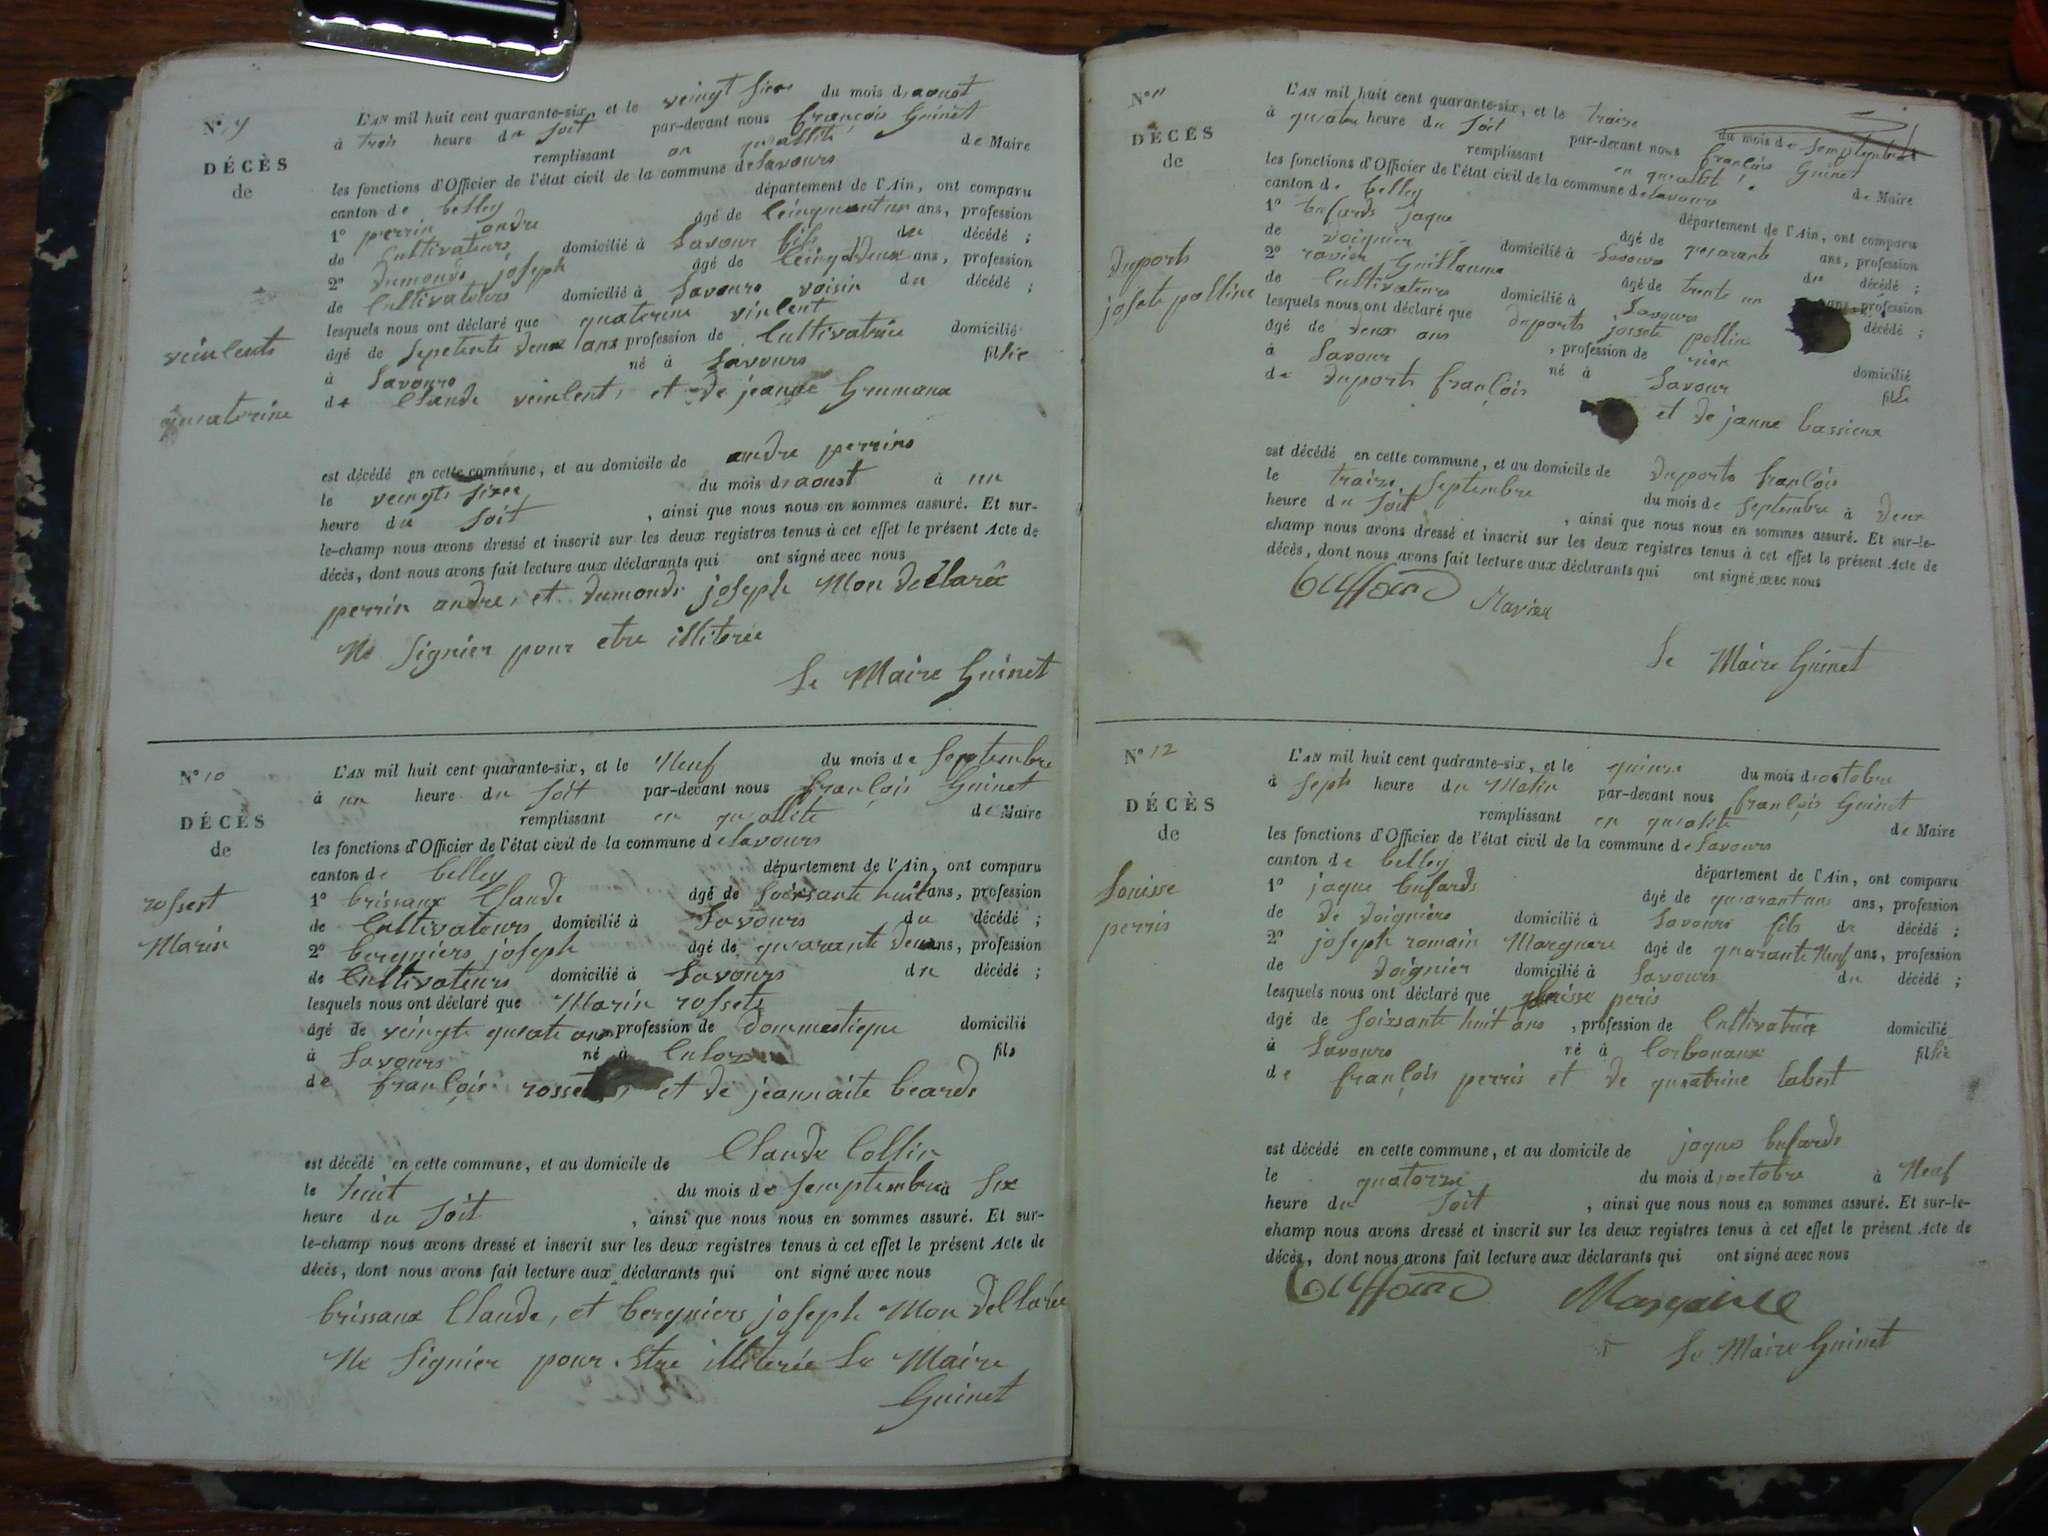 N° 9
DÉCÈS
de
veinlents
quaterine
L'AN mil huit cent quarante-six, et le veingt sixe du mois d aoust
à trois heure du soit par-devant nous françois Guinet
remplissant en quallité de Maire
les fonctions d'Officier de l'état civil de la commune de Savours
canton de belley département de l'Ain, ont comparu
1° perrin andre âgé de ans, profession
de Cultivateurs domicilié à Savour fils du décédé ;
2° dumonds joseph âgé de ans, profession
de Cultivateurs domicilié à Savours voisin du décédé ;
lesquels nous ont déclaré que quaterine vinlent
âgé de deux ans profession de Cultivatrice domicilié
à Savours né à Savours fillie
de Claude veinlent, et de jeanne
est décédé en cette commune, et au domicile de andre perrins
le veingts sixe du mois d aoust à un
heure du soit, ainsi que nous nous en sommes assuré. Et sur-
le-champ nous avons dressé et inscrit sur les deux registres tenus à cet effet le présent Acte de
décès, dont nous avons fait lecture aux déclarants qui ont signé avec nous
perrin andre, et dumonds joseph Mon declaré
Ne signier pour etre illiterée
Le Maire Guinet
N° 10
DÉCÈS
de
rossest
Marin
L'AN mil huit cent quarante-six, et le Neuf du mois de Septembre
à un heure du soit par-devant nous françois Guinet
remplissant en quallite de Maire
les fonctions d'Officier de l'état civil de la commune de Savours
canton de belley département de l'Ain, ont comparu
1° brissaux Claude âgé de soissante huit ans, profession
de Cultivateurs domicilié à Savours du décédé ;
2° bergniers joseph âgé de quarante deux ans, profession
de Cultivateurs domicilié à Savours du décédé ;
lesquels nous ont déclaré que Marin rossets
âgé de veingts quiate ans profession de dommestique domicilié
à Savours né à fils
de françois et de jeannaite beards
est décédé en cette commune, et au domicile de Claude Collin
le huit du mois de Semptembre à Six
heure du soit, ainsi que nous nous en sommes assuré. Et sur-
le-champ nous avons dressé et inscrit sur les deux registres tenus à cet effet le présent Acte de
décès, dont nous avons fait lecture aux déclarants qui ont signé avec nous
brissaux Claude, et bergniers joseph Mon dellarée
Ne signier pour estre illiterée Le Maire
Guinet
N° 11
DÉCÈS
de
duports
josete polline
L'AN mil huit cent quarante-six, et le traize du mois de Semptembre
à quatre heure du soit par-devant nous françois Guinet
remplissant en quallité de Maire
les fonctions d'Officier de l'état civil de la commune de Savours
canton de belley département de l'Ain, ont comparu
1° bufards jaque âgé de quarante ans, profession
de doignier domicilié à Savours du décédé ;
2° ravier Guillaume âgé de trente un ans, profession
de Cultivateurs domicilié à Savours décédé ;
lesquels nous ont déclaré que duports jossete pollin
âgé de deux ans, profession de rien domicilié
à Savour né à Savour fille
de duports françois et de janne bassieux
est décédé en cette commune, et au domicile de duports françois
le traize Septembre du mois de Septembre à deux
heure du soit, ainsi que nous nous en sommes assuré. Et sur-le-
champ nous avons dressé et inscrit sur les deux registres tenus à cet effet le présent Acte de
décès, dont nous avons fait lecture aux déclarants qui ont signé avec nous
Buffard Ravier
Le Maire Guinet
N° 12
DÉCÈS
de
Louisse
perris
L'AN mil huit cent quarante-six, et le quinze du mois d octobre
à Seph heure du Matin par-devant nous françois Guinet
remplissant en qualite de Maire
les fonctions d'Officier de l'état civil de la commune de Savours
canton de belley département de l'Ain, ont comparu
1° jaque bufards âgé de quarant ans ans, profession
de de doigniers domicilié à Savours fils du décédé ;
2° joseph romain Marguere âgé de quarante Neuf ans, profession
de doignier domicilié à Savours du décédé ;
lesquels nous ont déclaré que peris
âgé de soixsante huit ans, profession de Cultivatrice domicilié
à Savours né à Corbonaux fillie
de françois perris et de quatrine Cabest
est décédé en cette commune, et au domicile de jaque bufards
le quatorze du mois d octobre à Neuf
heure du soit, ainsi que nous nous en sommes assuré. Et sur-le-
champ nous avons dressé et inscrit sur les deux registres tenus à cet effet le présent Acte de
décès, dont nous avons fait lecture aux déclarants qui ont signé avec nous
Buffard
Le Maire Guinet